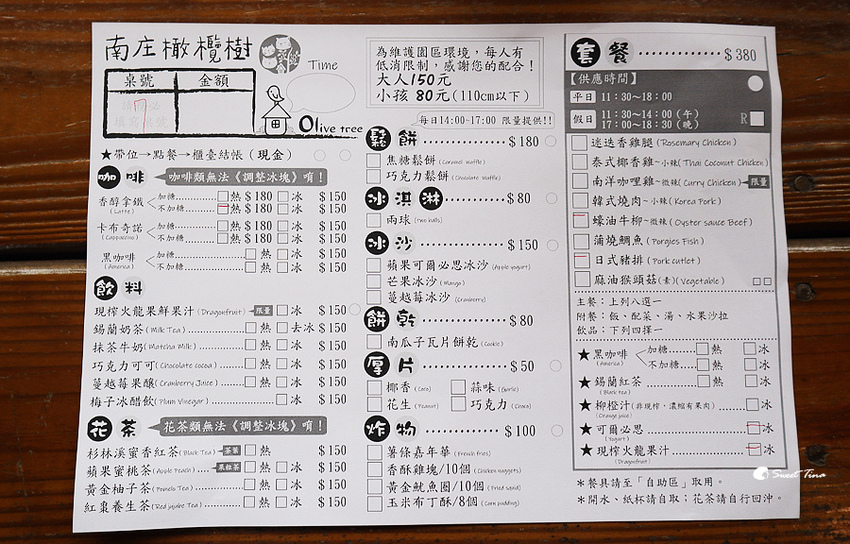 南庄橄欖樹
Time
桌號 金額
7
Olive tree
為維護園區環境，每人有
低消限制，感謝您的配合！
大人150元
小孩 80元(110cm以下)
★帶位→點餐→櫃臺結帳（現金）
咖啡 咖啡類無法《調整冰塊》唷！
香醇拿鐵 (Latte)
加糖 熱 $180 冰 $150
不加糖 熱 $180 冰 $150
卡布奇諾 (Cappuccino)
加糖 熱 $180 冰 $150
不加糖 熱 $180 冰 $150
黑咖啡 (America)
加糖 熱 冰 $150
不加糖 熱 冰 $150
飲料
現榨火龍果鮮果汁(Dragonfruit) 限量 冰 $150
錫蘭奶茶(Milk Tea) 熱 去冰 $150
抹茶牛奶(Matcha Milk) 熱 冰 $150
巧克力可可(Chocolate cocoa) 熱 冰 $150
蔓越莓果醸(Cranberry Juice) 熱 冰 $150
梅子冰醋飲(Plum Vinegar) 冰 $150
花茶 花茶類無法《調整冰塊》唷！
杉林溪蜜香紅茶(Black Tea) 茶葉 熱 $150
蘋果蜜桃茶(Apple Peach) 果粒茶 熱 冰 $150
黃金柚子茶(Pomelo Tea) 熱 冰 $150
紅棗養生茶(Red jujube Tea) 熱 冰 $150
每日14:00~17:00 限量提供!!
鬆餅 $180
焦糖鬆餅(Caramel Waffle)
巧克力鬆餅(Chocolate Waffle)
冰淇淋 $80
兩球(two balls)
冰沙 $150
蘋果可爾必思冰沙(Apple yogurt)
芒果冰沙(Mango)
蔓越莓冰沙(Cranberry)
餅乾 $80
南瓜子瓦片餅乾(Cookie)
厚片 $50
椰香(Coco) 蒜味(Garlic)
花生(Peanut) 巧克力(Choco)
炸物 $100
薯條嘉年華(French fries)
香酥雞塊/10個(Chicken nuggets)
黃金魷魚圈/10個(Fried squid)
玉米布丁酥/8個(Corn pudding)
套餐 $380
【供應時間】
平日 11：30~18：00
假日 11：30~14：00（午）
17：00~18：30（晚） R
迷迭香雞腿(Rosemary Chicken)
泰式椰香雞~小辣(Thai Coconut Chicken)
南洋咖哩雞~微辣(Curry Chicken) 限量
韓式燒肉~小辣(Korea Pork)
蠔油牛柳~微辣(Oyster sauce Beef)
蒲燒鯛魚(Porgies Fish)
日式豬排(Pork cutlet)
麻油猴頭菇(素)(Vegetable)
主餐：上列八選一
附餐：飯、配菜、湯、水果沙拉
飲品：下列四擇一
★黑咖啡 (America)
加糖 熱 冰
不加糖 熱 冰
★錫蘭紅茶 熱 冰
(Black tea)
★柳橙汁(非現榨，濃縮有果肉) 冰
(Orange juice)
★可爾必思 冰
(Yogurt)
★現榨火龍果汁 冰
(Dragonfruit)
Sweet Tina
＊餐具請至「自助區」取用。
＊開水、紙杯請自取；花茶請自行回沖。